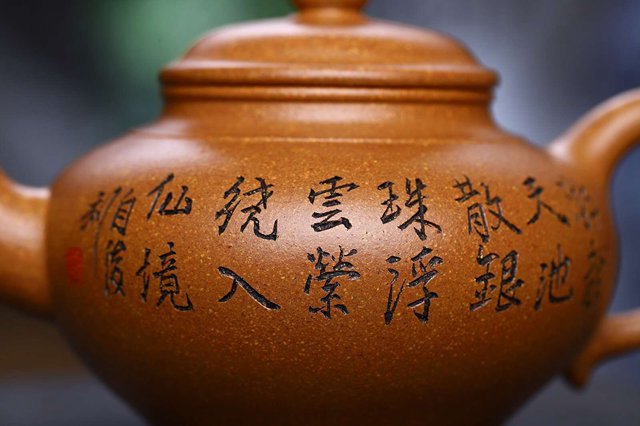 天池
散銀
珠浮
雲縈
繞入
仙境